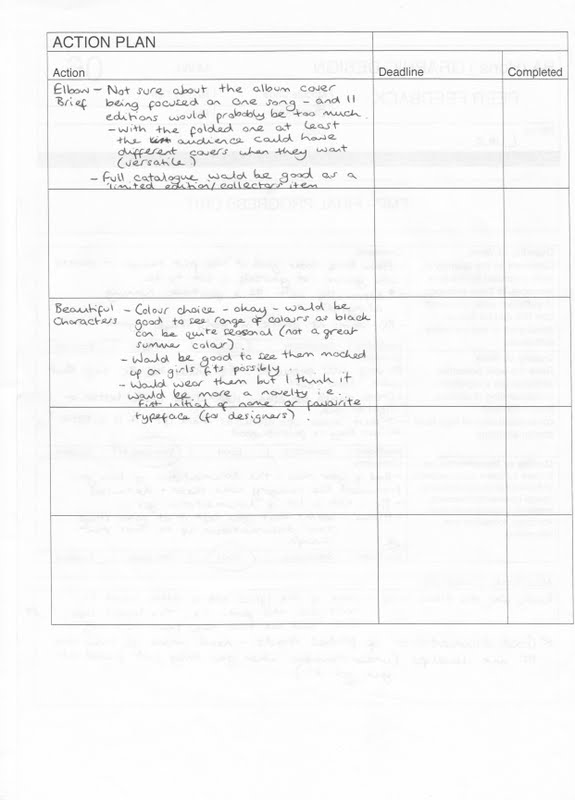 ACTION PLAN
Action Deadline Completed
Elbow - Not sure about the album cover
Brief being focused on one song - and 11
editions would probably be too much.
- with the folded one at least
the audience could have
different covers when they want
(versatile)
- Full catalogue would be good as a
'limited edition/collectors item
Beautiful - Colour choice - okay - would be
Characters good to see range of colours as black
can be quite seasonal (not a great
summer colour).
- Would be good to see them mocked
up on girls fits possibly.
- Would wear them but I think it
would be more a novelty i.e.
first initial of name or favourite
typeface (for designers).